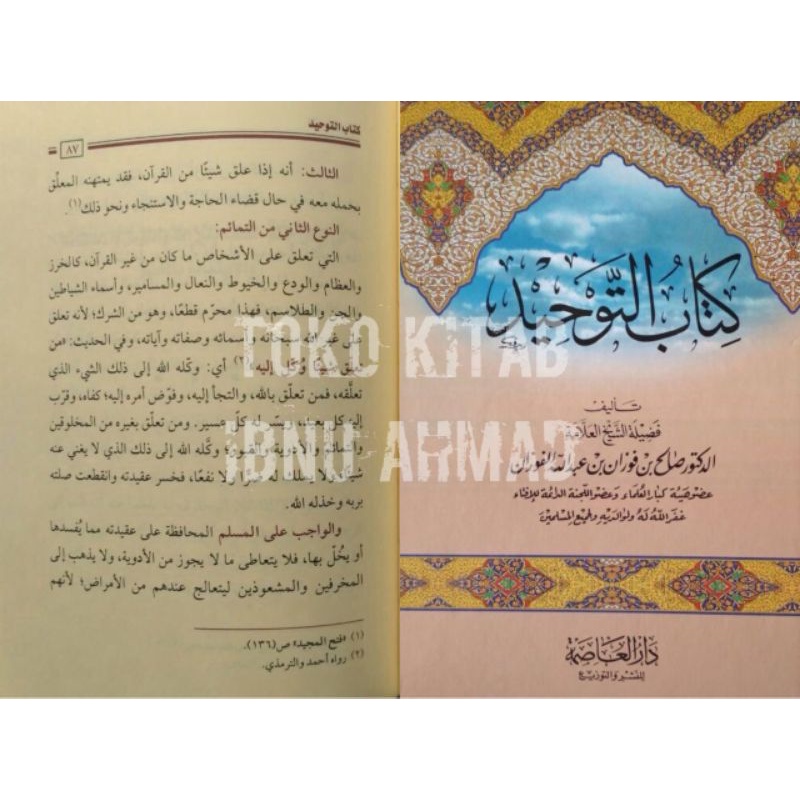 كتاب التوحيد
٨٧
الثالث: أنه إذا علق شيئًا من القرآن، فقد يمتهنه المعلّق
بحمله معه في حال قضاء الحاجة والاستنجاء ونحو ذلك(١).
النوع الثاني من التمائم:
التي تعلق على الأشخاص ما كان من غير القرآن، كالخرز
والعظام والودع والخيوط والنعال والمسامير، وأسماء الشياطين
والجن والطلاسم، فهذا محرّم قطعًا، وهو من الشرك؛ لأنه تعلق
على غير الله سبحانه وأسمائه وصفاته وآياته، وفي الحديث: «من
تعلق شيئًا وُكِلَ إليه»(٢) أي: وكله الله إلى ذلك الشيء الذي
تعلّقه، فمن تعلّق بالله، والتجأ إليه، وفوّض أمره إليه؛ كفاه، وقرّب
إليه كل بعيد، ويسّر له كلّ عسير. ومن تعلّق بغيره من المخلوقين
والتمائم والأدوية والقبور؛ وكّله الله إلى ذلك الذي لا يغني عنه
شيئًا ولا يملك له ضرًّا ولا نفعًا، فخسر عقيدته وانقطعت صلته
بربه وخذله الله.
والواجب على المسلم المحافظة على عقيدته مما يُفسدها
أو يخُلّ بها، فلا يتعاطى ما لا يجوز من الأدوية، ولا يذهب إلى
المخرفين والمشعوذين ليتعالج عندهم من الأمراض؛ لأنهم
(١) «فتح المجيد» ص(١٣٦).
(٢) رواه أحمد والترمذي.
كِتَابُ التَّوْحِيْدِ
تأليف
فضيلة الشيخ العلامة
الدكتور صالح بن فوزان بن عبد الله الفوزان
عضو هيئة كبار العلماء وعضو اللجنة الدائمة للإفتاء
غفر الله له ولوالديه ولجميع المسلمين
دار العاصمة
للنشر والتوزيع
TOKO KITAB
IBNU AHMAD